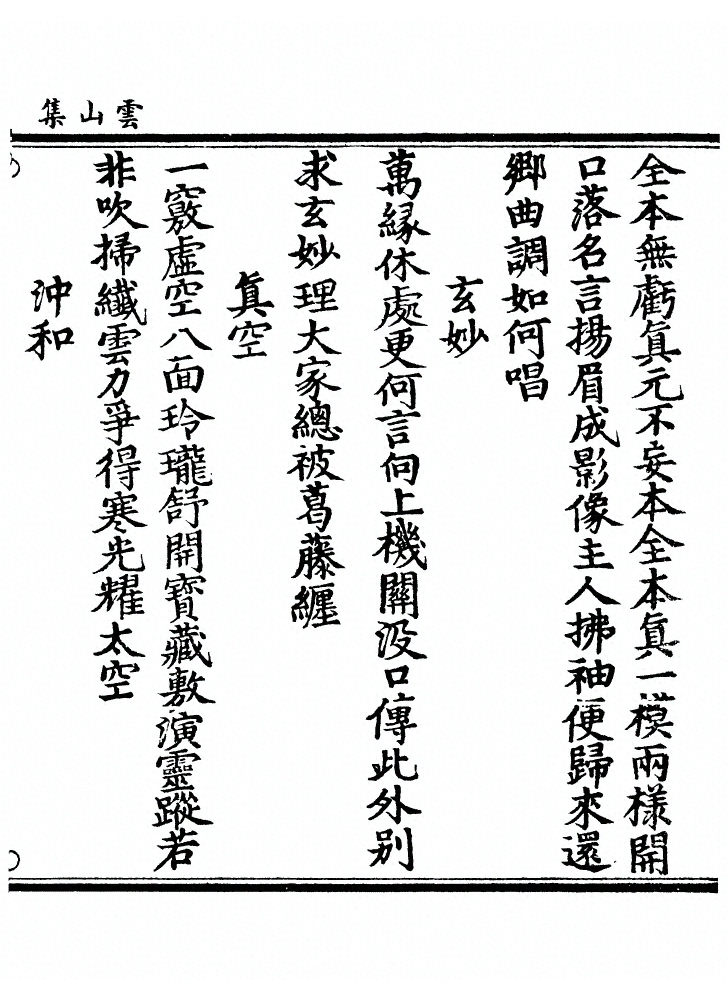 雲山集
全本無虧眞元不妄本全本眞一模兩様開
口落名言揚眉成影像主人拂袖便歸來還
鄉曲調如何唱
玄妙
萬緣休處更何言向上機關没口傳此外别
求玄妙理大家總被葛藤纏
眞空
一竅虛空八面玲瓏舒開寶藏敷演靈蹤若
非吹掃纎雲力爭得寒光耀太空
沖和